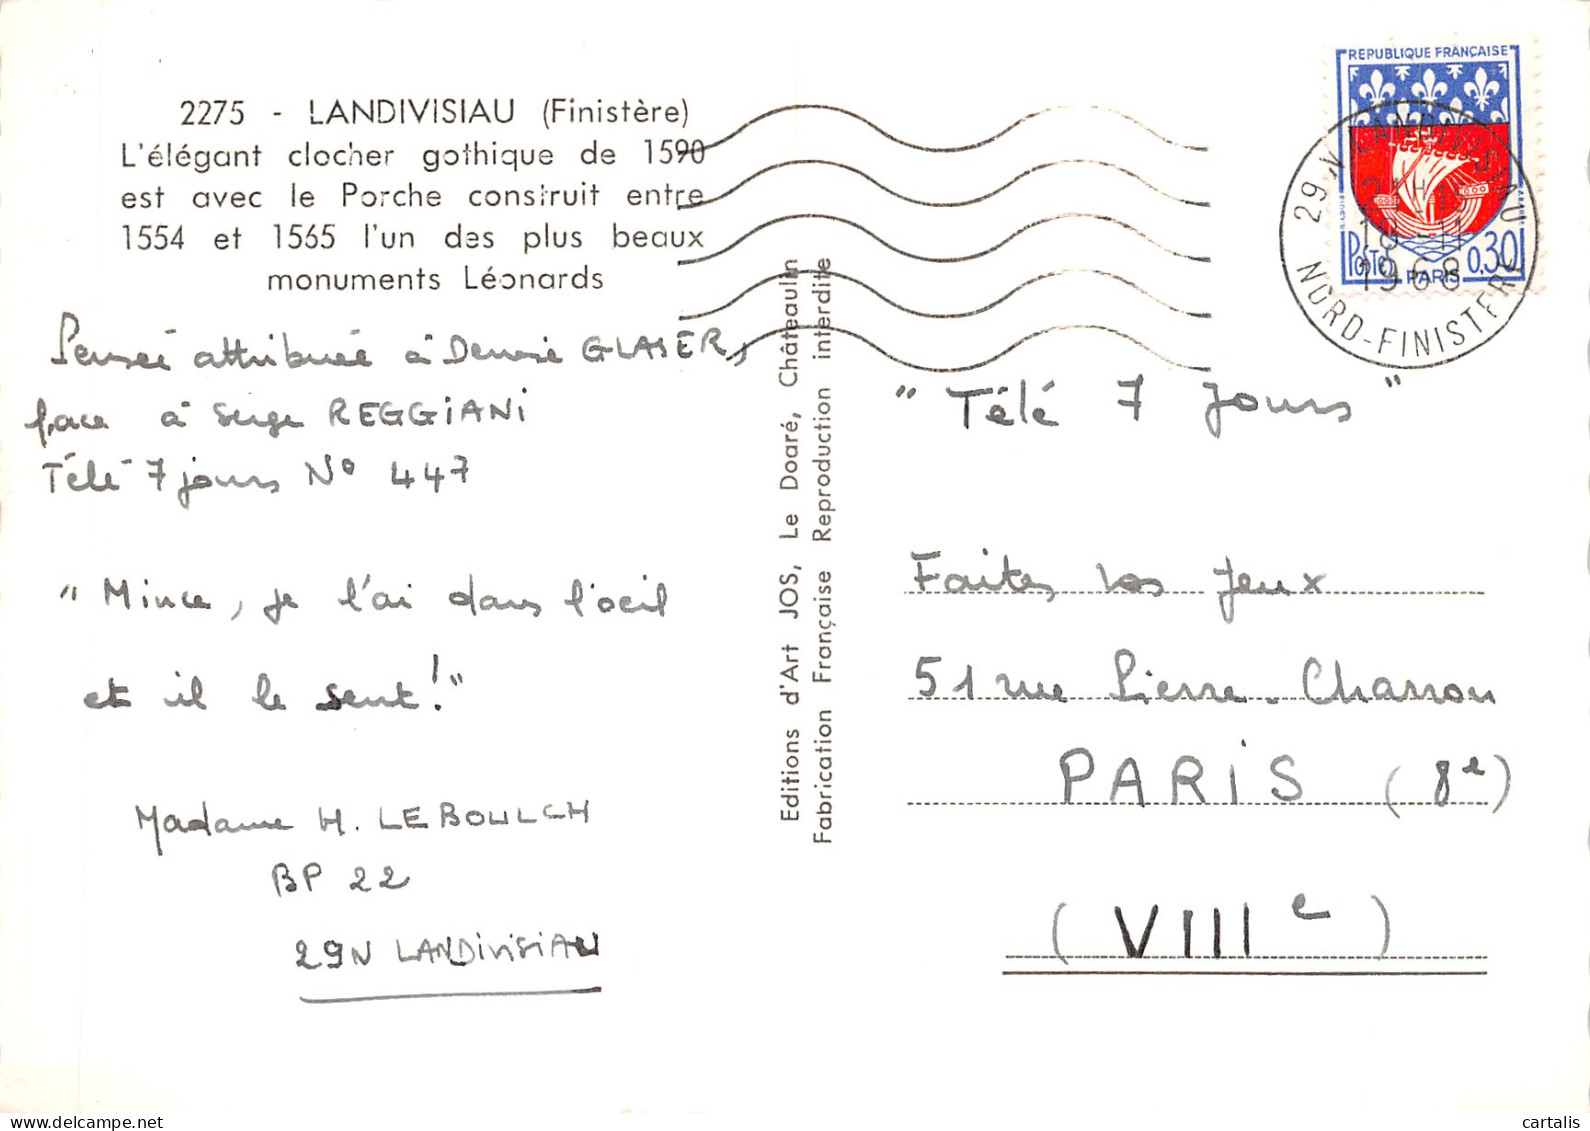 2275 - LANDIVISIAU (Finistère)
L'élégant clocher gothique de 1590
est avec le Porche construit entre
1554 et 1565 l'un des plus beaux
monuments Léonards
Pensée attribuée à Denise GLASER,
face à Serge REGGIANI
Télé 7 jours N° 447
"Mince, je l'ai dans l'oeil
et il le sent!"
Madame H. LE BOULCH
BP 22
29N LANDIVISIAU
Editions d'Art JOS, Le Doaré, Châteaulin
Fabrication Française Reproduction interdite
REPUBLIQUE FRANÇAISE
POSTES 0,30
PARIS
29 N LANDIVISIAU
18 -11
1968
NORD-FINISTERE
"Télé 7 Jours"
Faites vos Jeux
51 rue Pierre-Charron
PARIS (8e)
(VIIIe)
cartalis